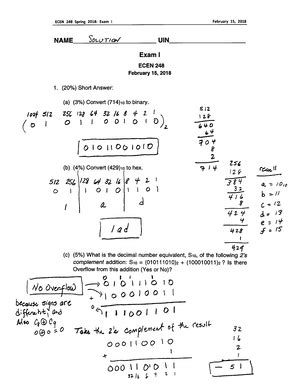 ECEN 248 Spring 2018: Exam I February 15, 2018
NAME SOLUTION UIN
Exam I
ECEN 248
February 15, 2018
1. (20%) Short Answer:
(a) (3%) Convert (714)10 to binary.
1024 512 256 128 64 32 16 8 4 2 1
(0 1 0 1 1 0 0 1 0 1 0)2
01011001010
512
128
640
64
704
8
2
714
(b) (4%) Convert (429)10 to hex.
512 256 128 64 32 16 8 4 2 1
0 1 1 0 1 0 1 1 0 1
1 a d
1ad
256
128
384
32
416
8
424
4
428
1
429
recall
a = 10
b = 11
c = 12
d = 13
e = 14
f = 15
(c) (5%) What is the decimal number equivalent, S10, of the following 2's
complement addition: S10 = (010111010)2 + (100010011)2 ? Is there
Overflow from this addition (Yes or No)?
No Overflow
because signs are
different, and
Also
010111010
+ 100010011
111001101
Take the 2's complement of the result
000110010
+ 1
000110011
32 16 2 1
32
16
2
1
- 51